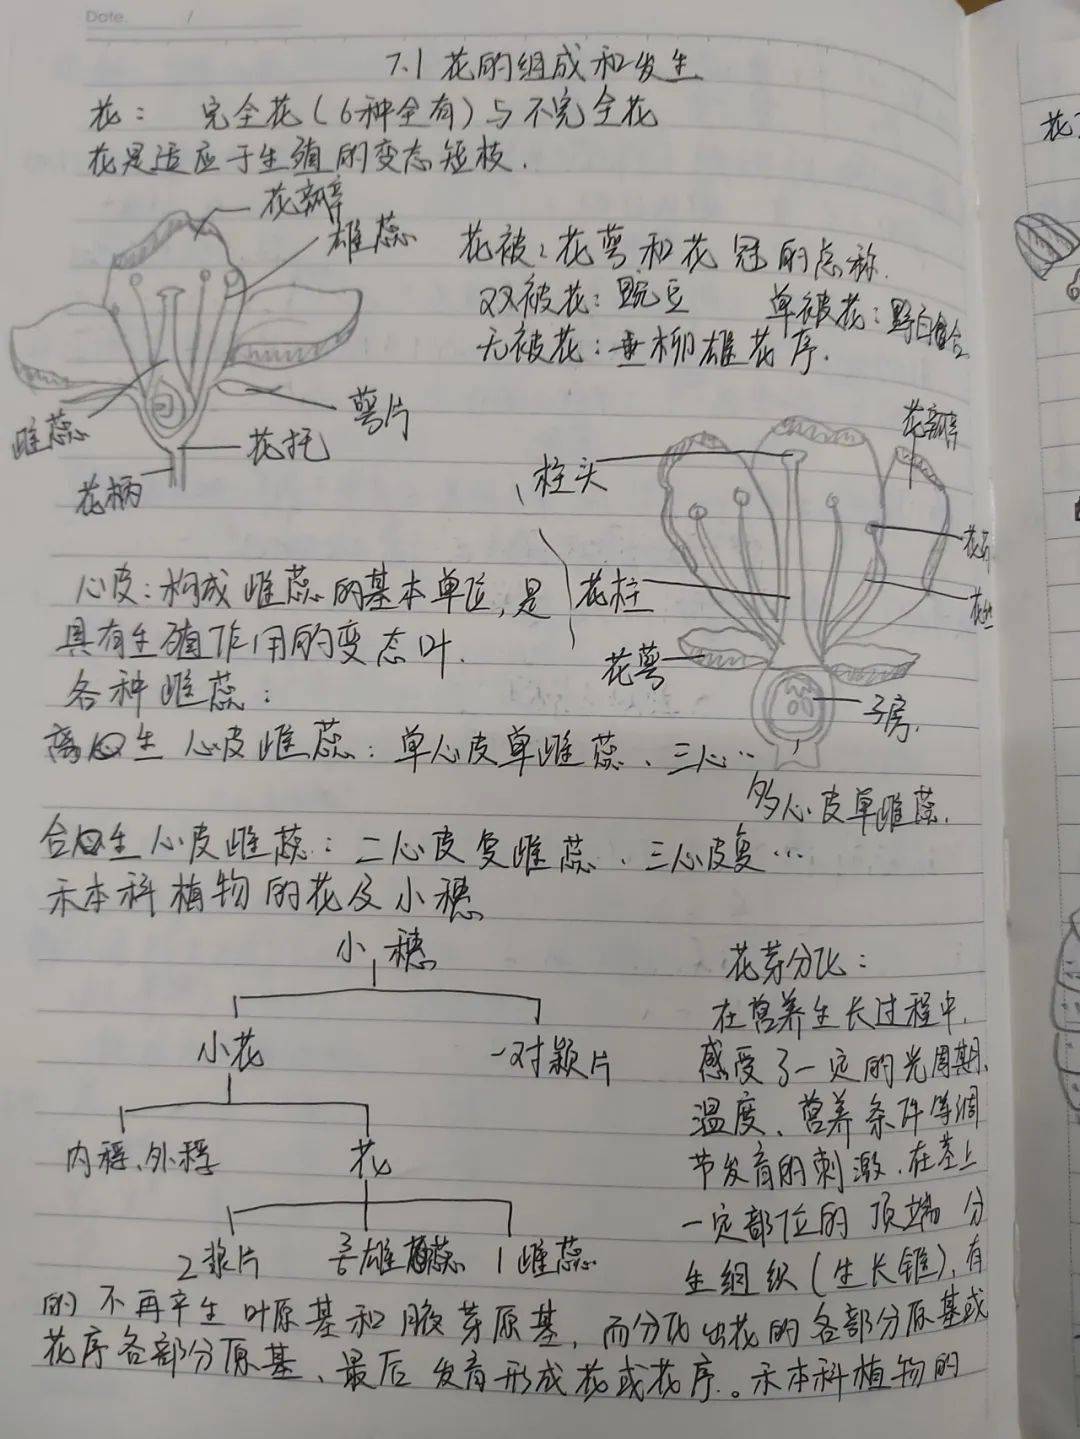 Date. /
7.1 花的组成和发生
花： 完全花(6种全有)与不完全花
花是适应于生殖的变态短枝.
花瓣
雄蕊
花被：花萼和花冠的总称.
双被花：豌豆 单被花：野百合
无被花：垂柳雄花序.
雌蕊
萼片
花托
花柄
花瓣
柱头
心皮：构成雌蕊的基本单位,是
具有生殖作用的变态叶.
花柱
花萼
子房.
各种雌蕊：
离生心皮雌蕊：单心皮单雌蕊、三心…
多心皮单雌蕊.
合生心皮雌蕊：二心皮复雌蕊、三心皮复…
禾本科植物的花及小穗
小穗
小花 一对颖片
内稃、外稃 花
2浆片 雄蕊 1雌蕊
花芽分化：
在营养生长过程中,
感受了一定的光周期、
温度、营养条件等调
节发育的刺激,在茎上
一定部位的顶端分
生组织(生长锥),有
的不再产生叶原基和腋芽原基,而分化出花的各部分原基或
花序各部分原基、最后发育形成花或花序。禾本科植物的